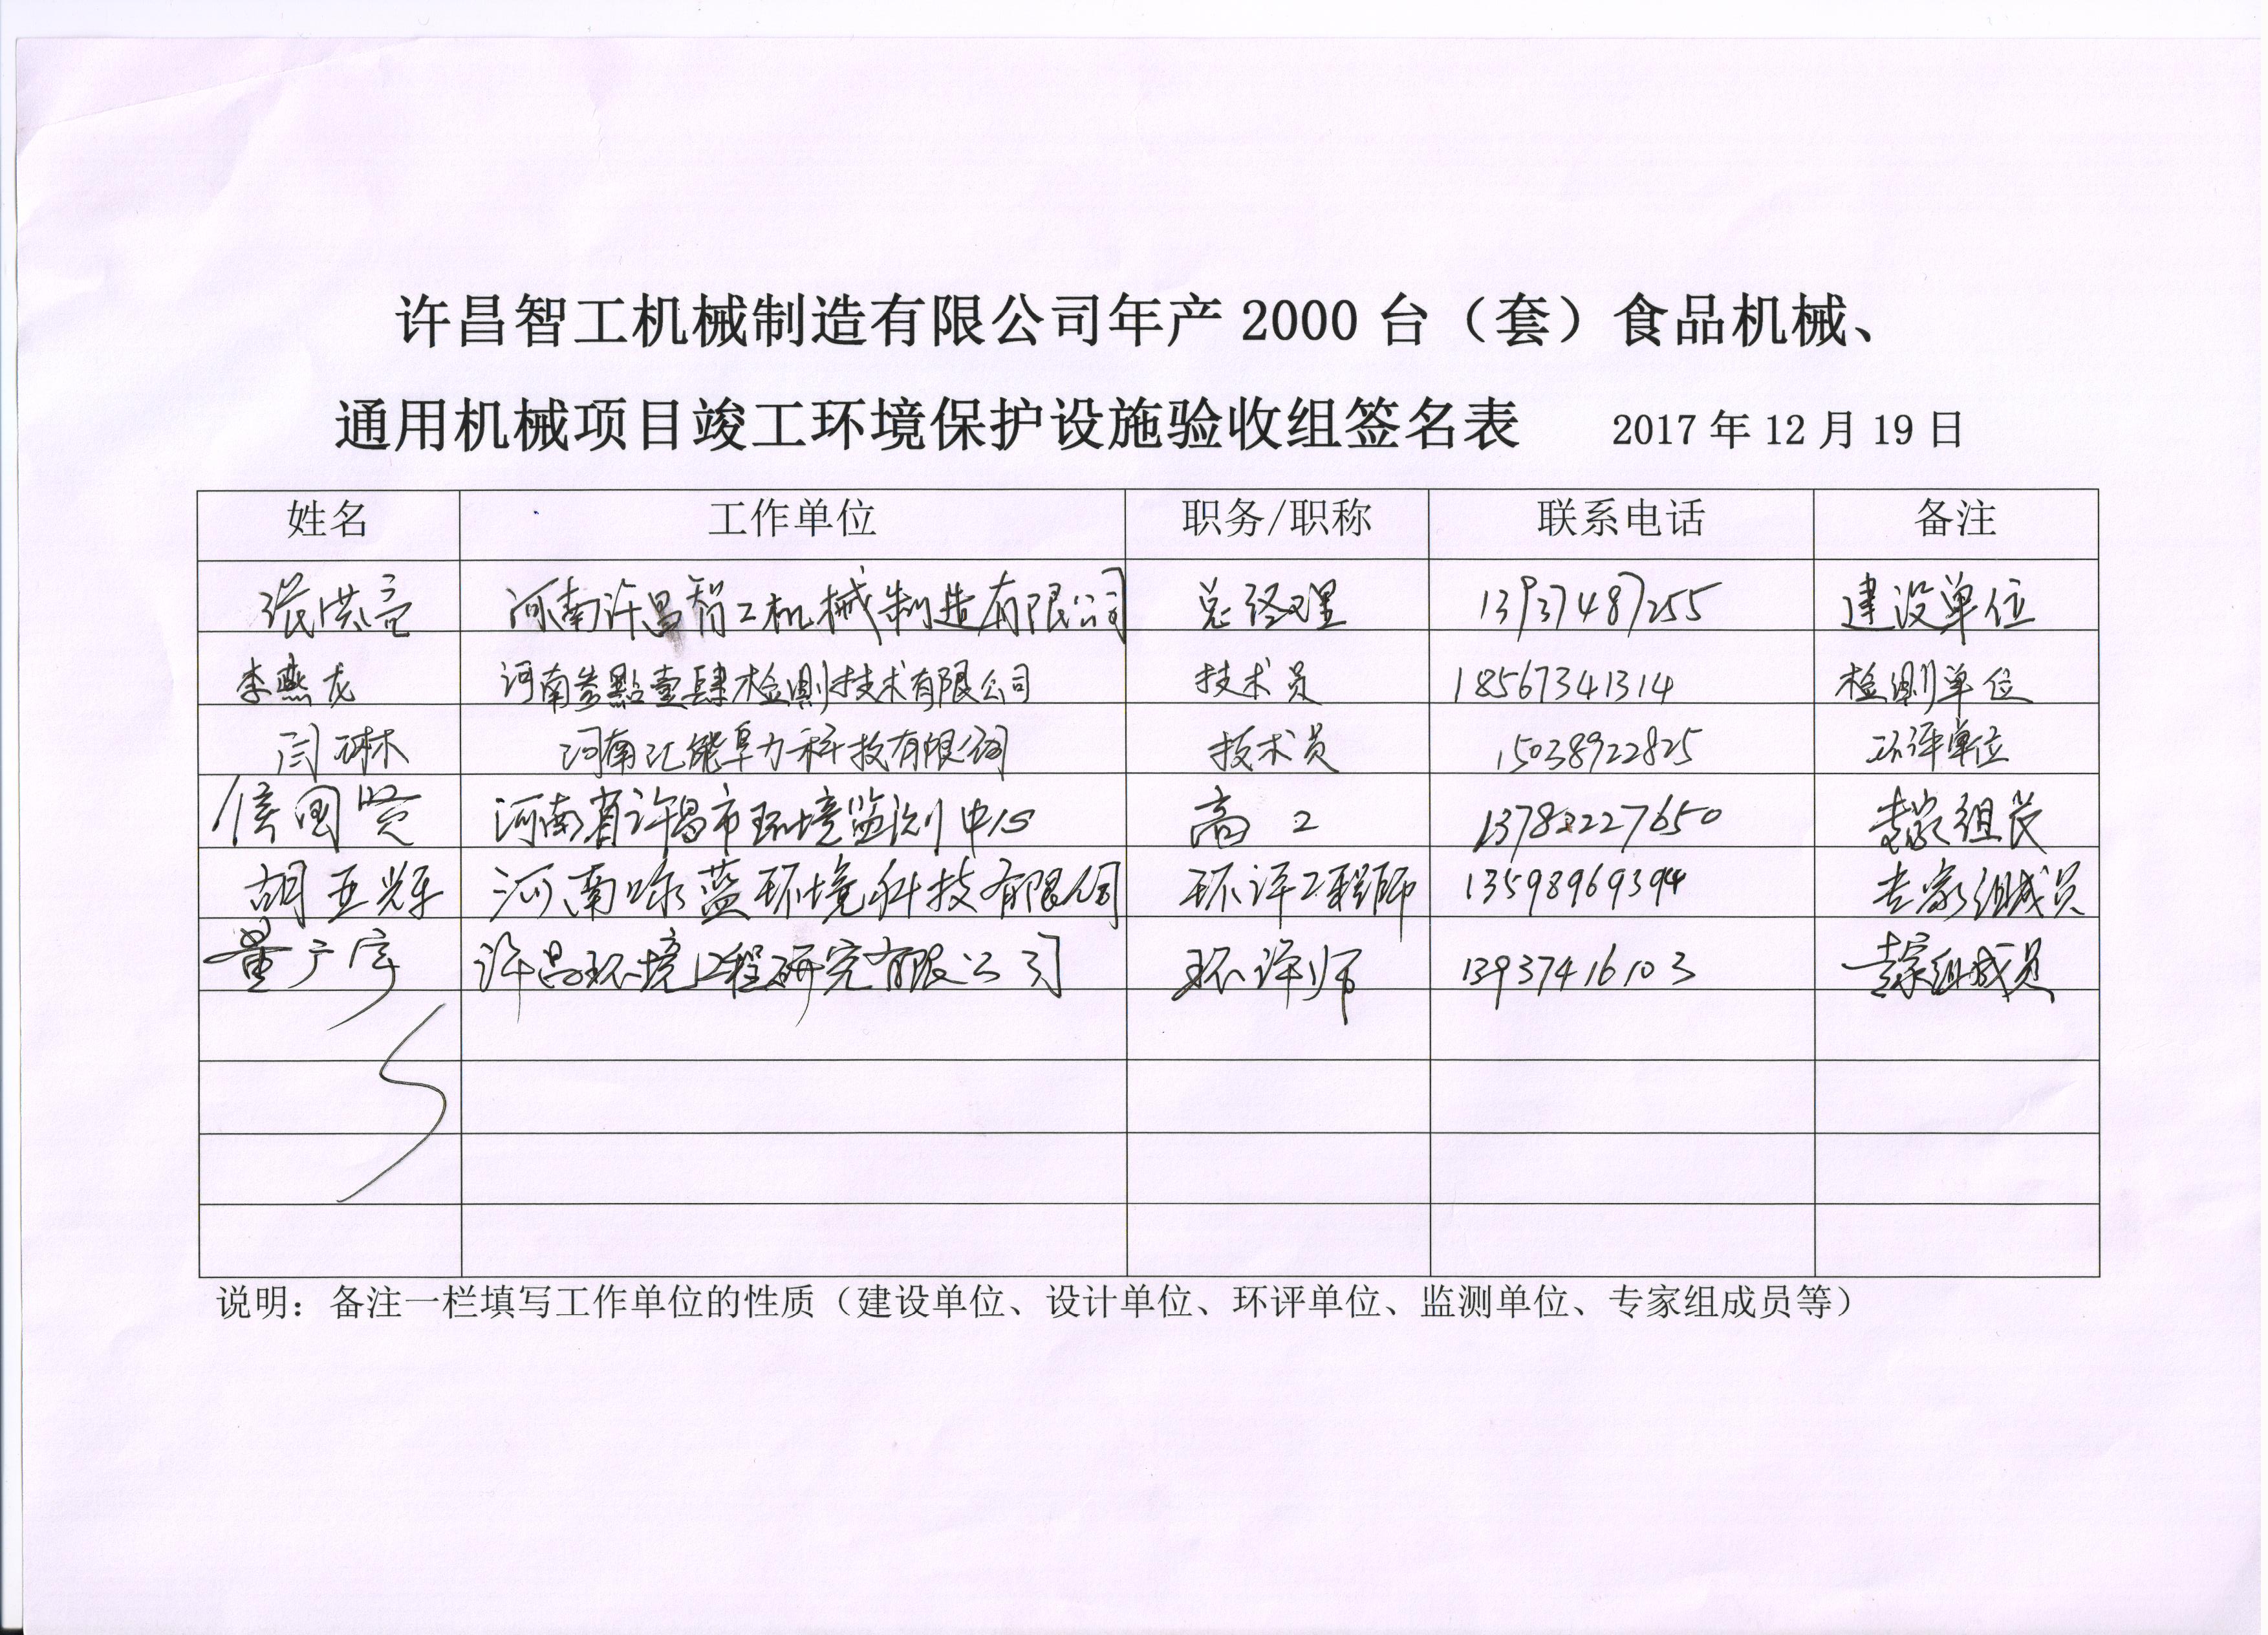 许昌智工机械制造有限公司年产 2000 台（套）食品机械、
通用机械项目竣工环境保护设施验收组签名表 2017 年 12 月 19 日
姓名 工作单位 职务/职称 联系电话 备注
张洪亮 河南许昌智工机械制造有限公司 总经理 13937487255 建设单位
李燕龙 河南叁點壹肆检测技术有限公司 技术员 18567341314 检测单位
闫琳 河南汇能阜力科技有限公司 技术员 15038922825 环评单位
侯国贤 河南省许昌市环境监测中心 高工 13782227650 专家组长
胡亚辉 河南咏蓝环境科技有限公司 环评工程师 13598969394 专家组成员
董广 许昌环境工程研究有限公司 环评师 13937416103 专家组成员
说明：备注一栏填写工作单位的性质（建设单位、设计单位、环评单位、监测单位、专家组成员等）